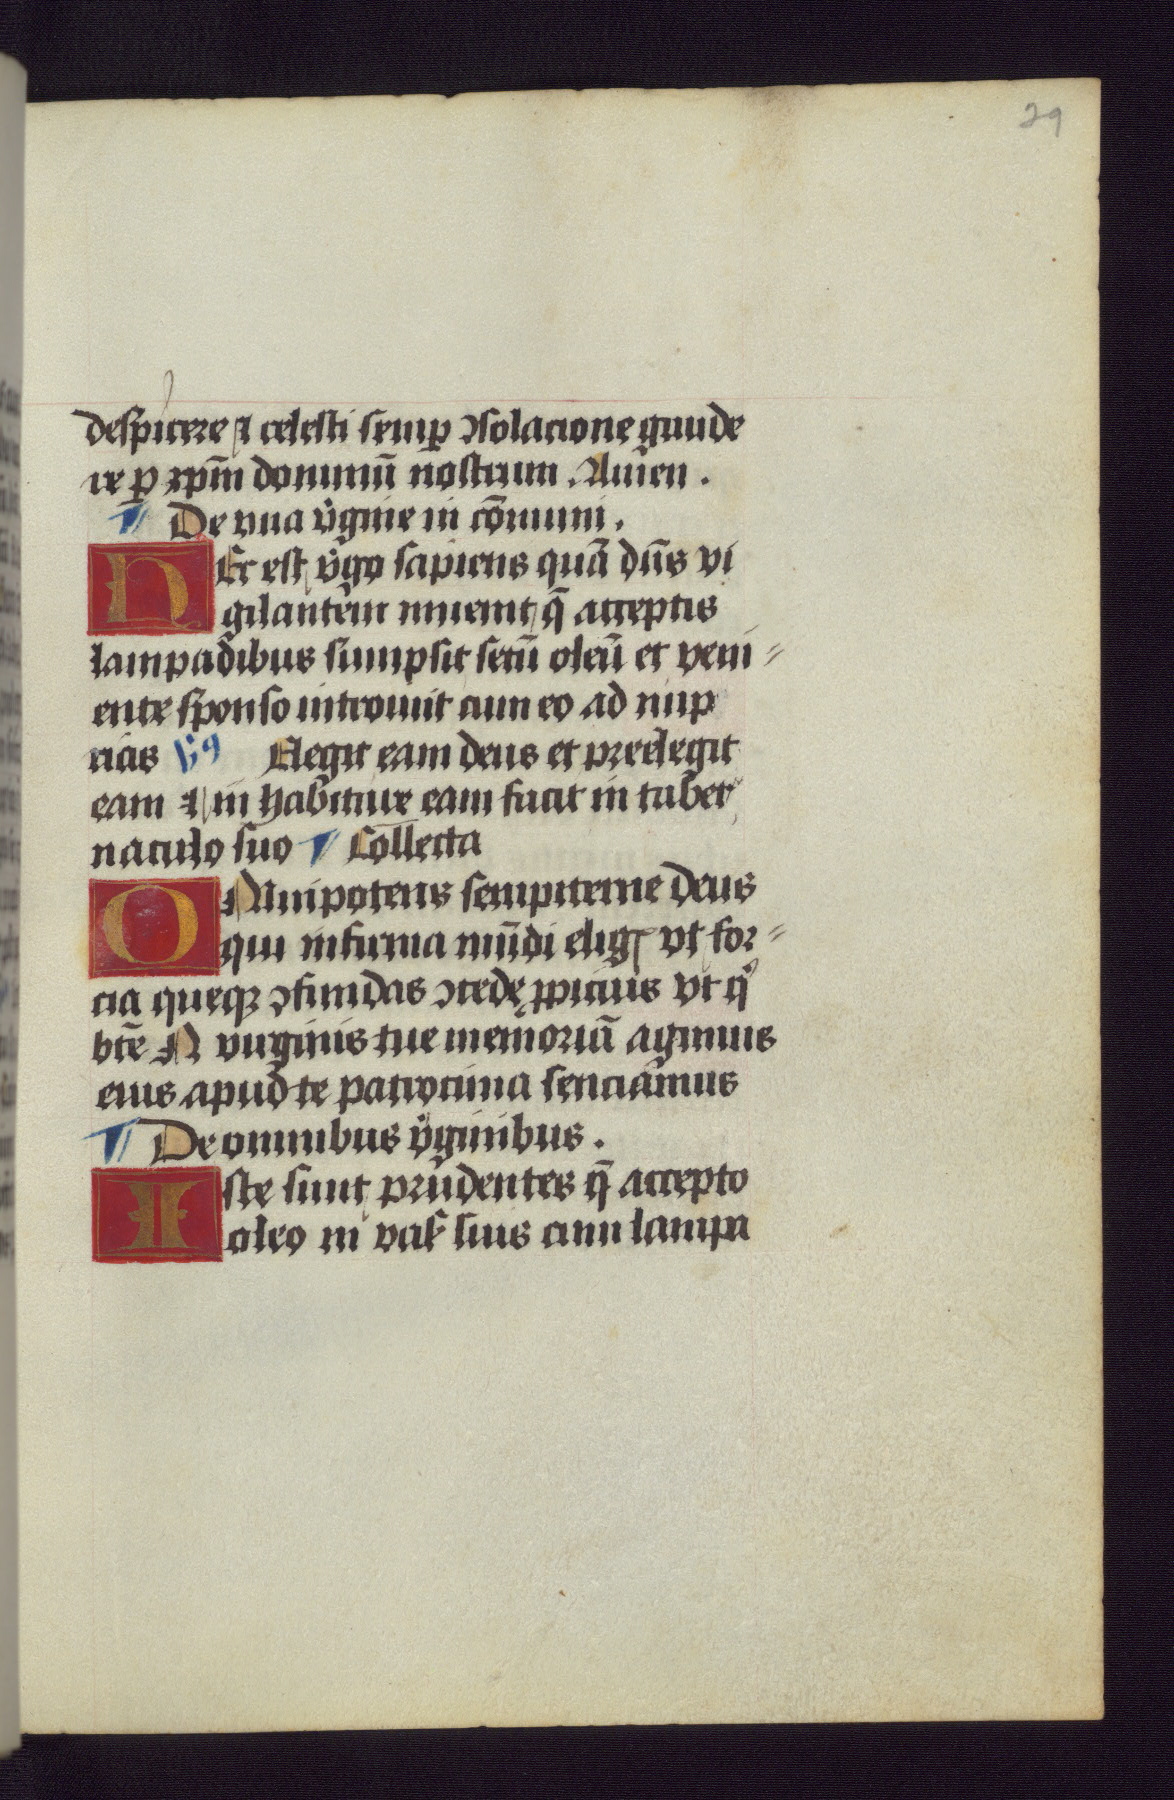 29
despicere ⁊ celesti semꝑ ↄsolacione gaude
re ꝑ xpm̄ dominū nostrum . Amen .
¶ De vna v̾gine in cōmuni .
Hec est v̾go sapiens quā dn̄s vi
gilantem inuenit q̄ acceptis
lampadibus sumpsit secū oleū et veni=
ente sponso introiuit cum eo ad nup
cias Vꝰ Elegit eam deus et preelegit
eam ⁊ in habitare eam facit in taber
naculo suo ¶ Collecta
OMnipotens sempiterne deus
qui infirma mūdi eligꝭ vt for=
cia queqꝫ ↄfundas ↄcede ꝓpicius vt qͥ
btē N virginis tue memoriā agimus
eius apud te patrocinia senciamus
¶ De omnibus v̾ginibus .
Iste sunt prudentes q̄ accepto
oleo in vasꝭ suis cum lampa